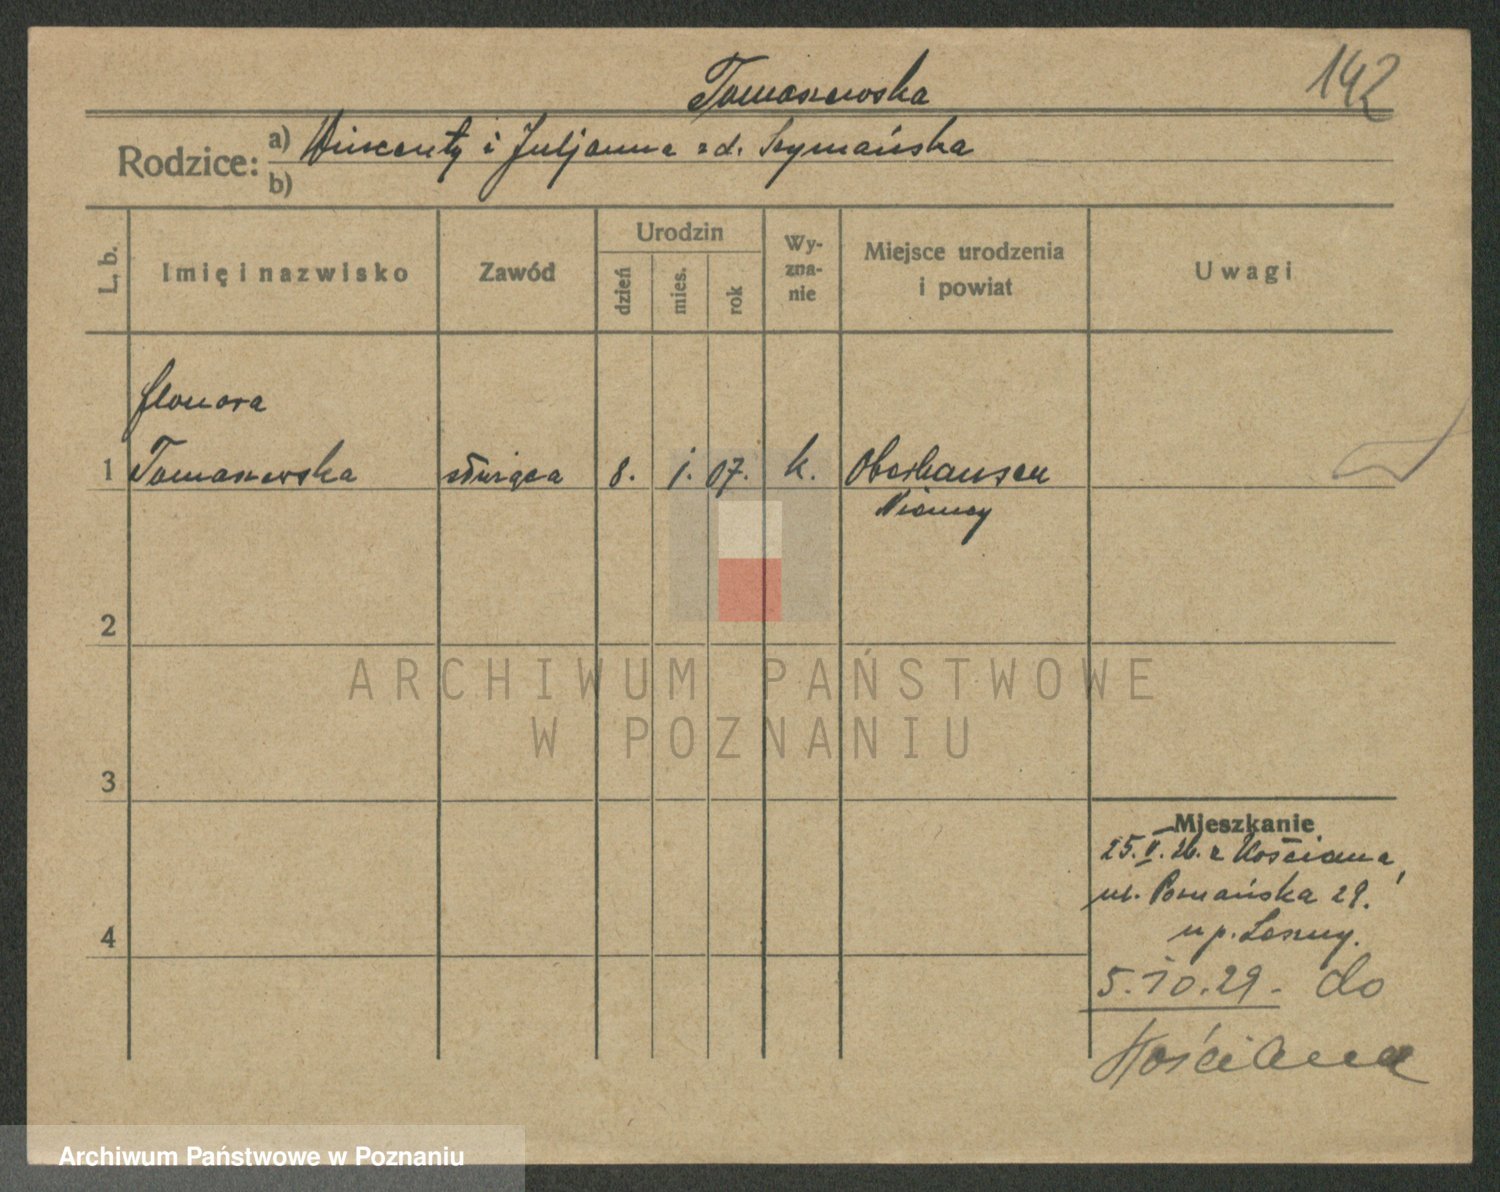 142
Tomaszewska
Rodzice: a) Wincenty i Juljanna zd. Szymańska
b)
L. b.
Imię i nazwisko
Zawód
Urodzin
dzień
mies.
rok
Wy-
zna-
nie
Miejsce urodzenia
i powiat
Uwagi
1
Tomaszewska
służąca
8. 1. 07.
k.
Oberhausen
Niemcy
2
3
4
Mieszkanie
z Kościana,
ul. Poznańska 29.
u p.
5.10.29. do
Kościana
ARCHIWUM PAŃSTWOWE
W POZNANIU
Archiwum Państwowe w Poznaniu